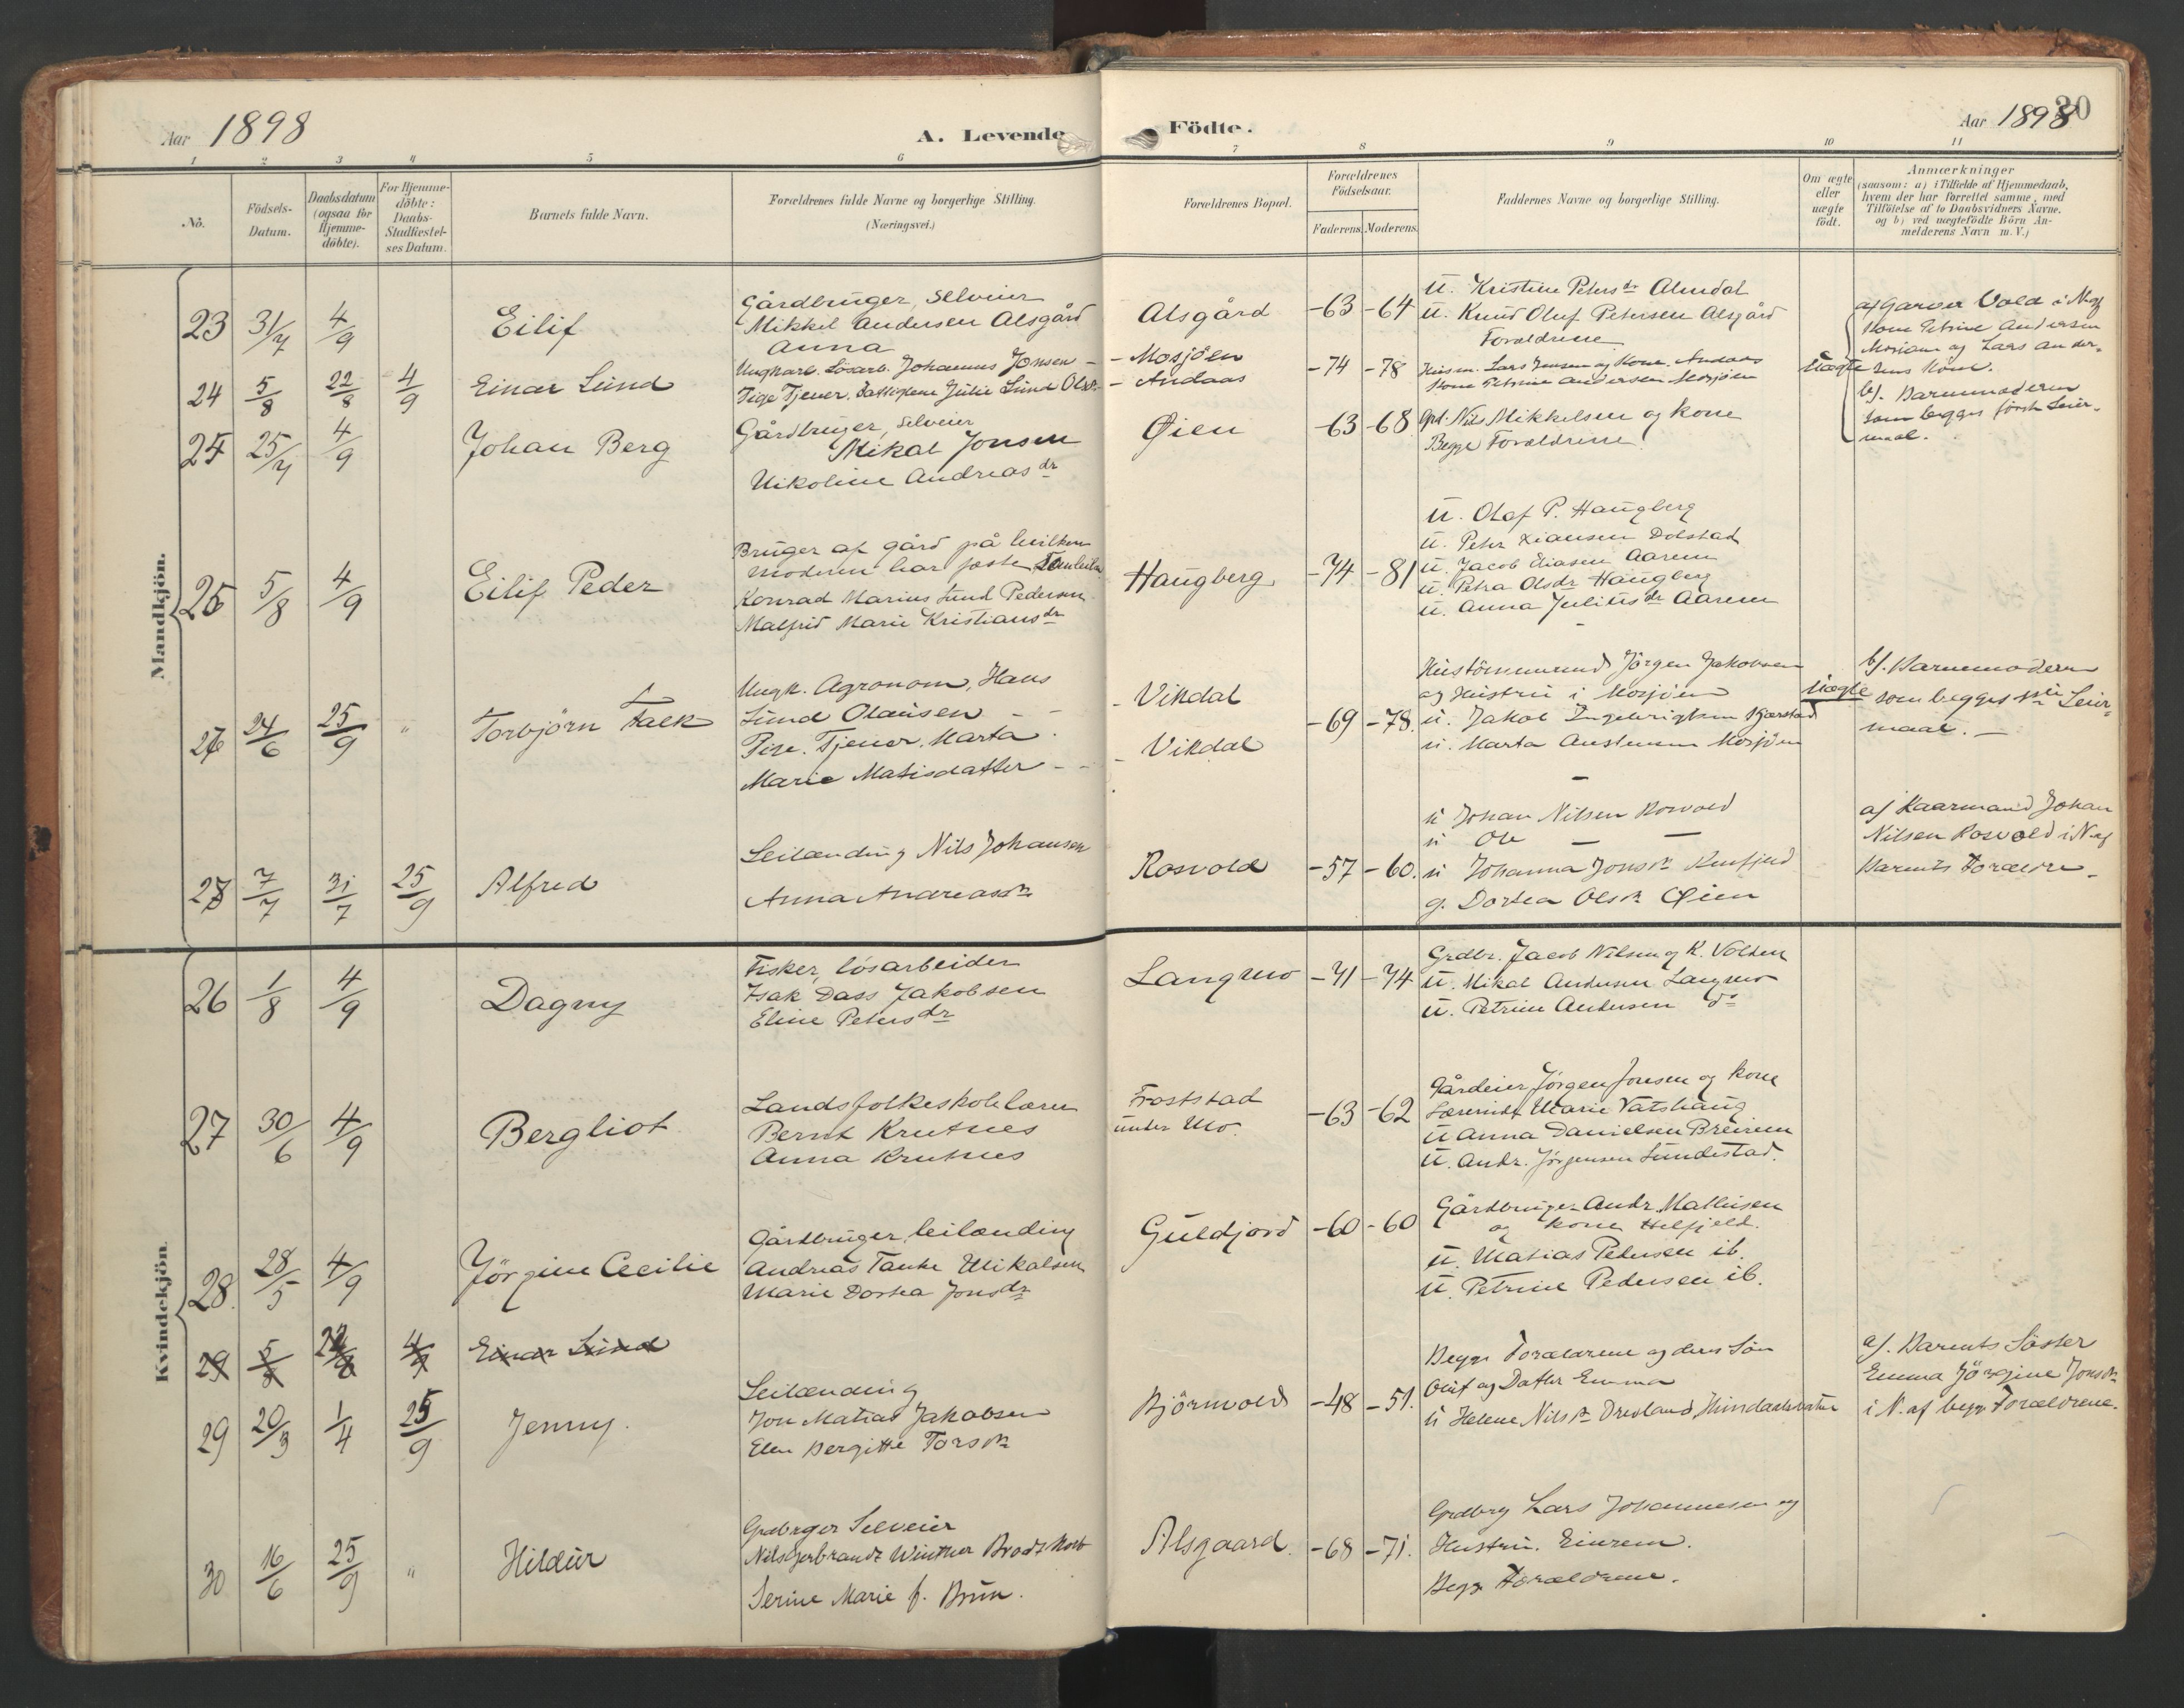 Aar 1898
A. Levende Födte.
Aar 1898
30
1 2 3 4 5 6 7 8 9 10 11
No.
Födsels-
Datum.
Daabsdatum
(ogsaa for
Hjemme-
döbte).
For Hjemme-
döbte:
Daabs-
Stadfæstel-
ses Datum.
Barnets fulde Navn.
Forældrenes fulde Navne og borgerlige Stilling.
(Næringsvei.)
Forældrenes Bopæl.
Forældrenes
Födselsaar.
Faderens. Moderens.
Faddernes Navne og borgerlige Stilling.
Om ægte
eller
uægte
födt.
Anmærkninger
(saasom: a) i Tilfælde af Hjemmedaab,
hvem der har forrettet samme, med
Tilföielse af to Daabsvidners Navne.
og b) ved uægtefödte Börn An-
melderens Navn m. V.)
Mandkjön.
23 31/7 4/9 Eilif
Gårdbruger, Selveier
Mikkel Andersen Alsgård
Anna
Alsgård -63 -64
U. Kristine Petersdr Almdal
U. Knud Oluf Petersen Alsgård
Forældrene
24 5/8 22/8 4/9 Einar Lund
Ungkarl. Lösarb. Johannes Jonsen -
Pige Tjener. Julie Lund
- Mosjöen
- Andaas
-74 -78
Husm. Lars Jensen og Kone. Andaas
Kone Petrine Andersen Mosjöen
Uægte
Kone Petrine Andersen
Mosjöen og Lars Ander-
sens Kone.
b). Barnemoderen
som begges förste Leier-
maal.
25 25/7 4/9 Johan Berg
Gårdbruger, Selveier
Mikal Jonsen
Nikoline Andreasdr
Øien -63 -68
Nils Mikkelsen og kone
Begge Forældrene
26 5/8 4/9 Eilif Peder
Bruger af gård på hvilken
moderen har fæste
Konrad Marius Lund Pedersen
Malfrid Marie Kristiansdr
Haugberg -74 -81
U. Olaf P. Haugberg
U. Peter Dolstad
U. Jacob Eliasen Aarem
U. Petra Olsdr Haugberg
U. Anna Juliusdr Aarem
27 24/6 25/9 " Torbjörn Falk
Ungk. Agronom, Hans
Lund Olausen - -
Pige. Tjener. Marta -
Marie Matisdatter - -
- Vikdal
- Vikdal
-69 -78.
Jörgen Jakobsen
og Hustru i Mosjöen
u. Jakob Ingebrigtsen
u. Marta Mosjöen
Uægte
b). Barnemoderen
som begges Leier-
maal. -
28 7/7 31/7 25/9 Alfred
Leilænding Nils Johansen
Anna Andreasdr
Rosvold -57 -60.
u Johan Nilsen Rosvold
u Ole -
u Johanna Jonsdr
g. Dortea Olsdr Øien
a) Kaarmand Johan
Nilsen Rosvold i N. af
Barnets Forældre
Kvindekjön.
26 1/8 4/9 Dagny
Fisker, lösarbeider
Isak Dass Jakobsen
Eline Petersdr
Langmo -71 -74
Grdbr. Jacob Nilsen og K. Volden
U. Mikal Andersen Langmo
U. Petrine Andersen do
27 30/6 4/9 Bergliot
Landsfolkeskolelærer
Bernt Krutnes
Anna Krutnes
Froststad
under Mo.
-63 -62
Gårdeier Jörgen Jonsen og kone
Lærerinde Marie Vatshaug
U Anna Danielsen Breirem
U. Andr. Jörgensen Lundestad.
28. 28/5 4/9 Jörgine Cecilie
Gårdbruger, leilænding
Andreas Tanke Mikalsen
Marie Dortea Jonsdr
Guldjord -60 -60
Gårdbruger Andr. Mathisen
og kone Helfjeld.
U. Matias Pedersen ib.
U. Petrine Pedersen ib.
29 5/8 22/8 4/9 Einar Lund
29 20/3 1/4 25/9 Jenny.
Leilænding
Jon Matias Jakobsen
Elen Bergitte Torsdr
Björnvold -48 -51.
Begge Forældrene og deres Sön
Oluf og Datter Emma
u Helene Nilsdr
a). Barnets Söster
Emma Jörgine Jonsdr
i N. af begge Forældrene.
30 16/6 25/9 " Hildur
Selveier
Nils Gjerbrandt Winther Brodtkorb
Serine Marie f. Brun.
Alsgaard. -68 -71.
Lars Johannesen og
Hustru. Einrem.
Begge Forældrene.